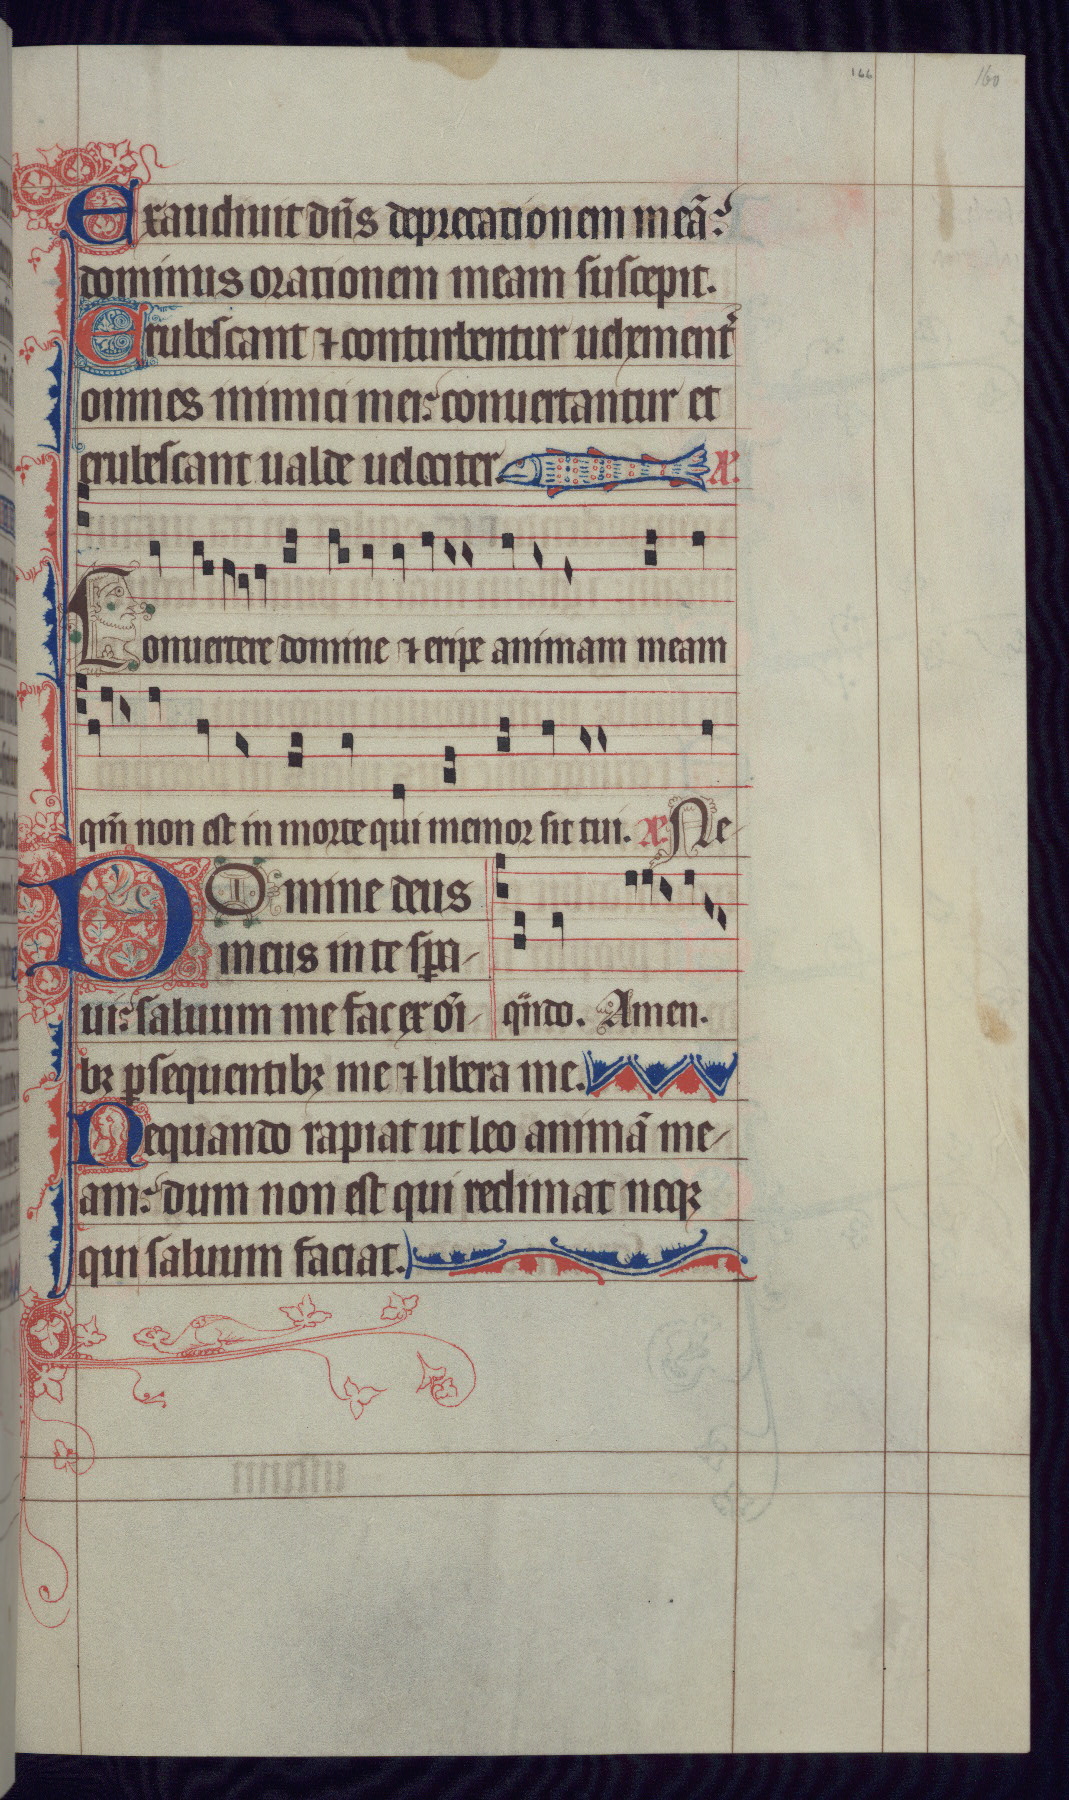 166
160
Exaudiuit dn̄s deprecationem meā:
dominus orationem meam suscepit.
Erubescant ⁊ conturbentur uehement᷑
omnes inimici mei: conuertantur et
erubescant ualde uelociter. Æ.
Conuertere domine ⁊ eripe animam meam
qm̄ non est in morte qui memor sit tui. Æ Ne
Domine deus
meus in te spera
ui: saluum me fac ex oi᷑
qn̄do. Amen.
bꝫ ꝑsequentibꝫ me ⁊ libera me.
Nequando rapiat ut leo animā me
am: dum non est qui redimat neqꝫ
qui saluum faciat.